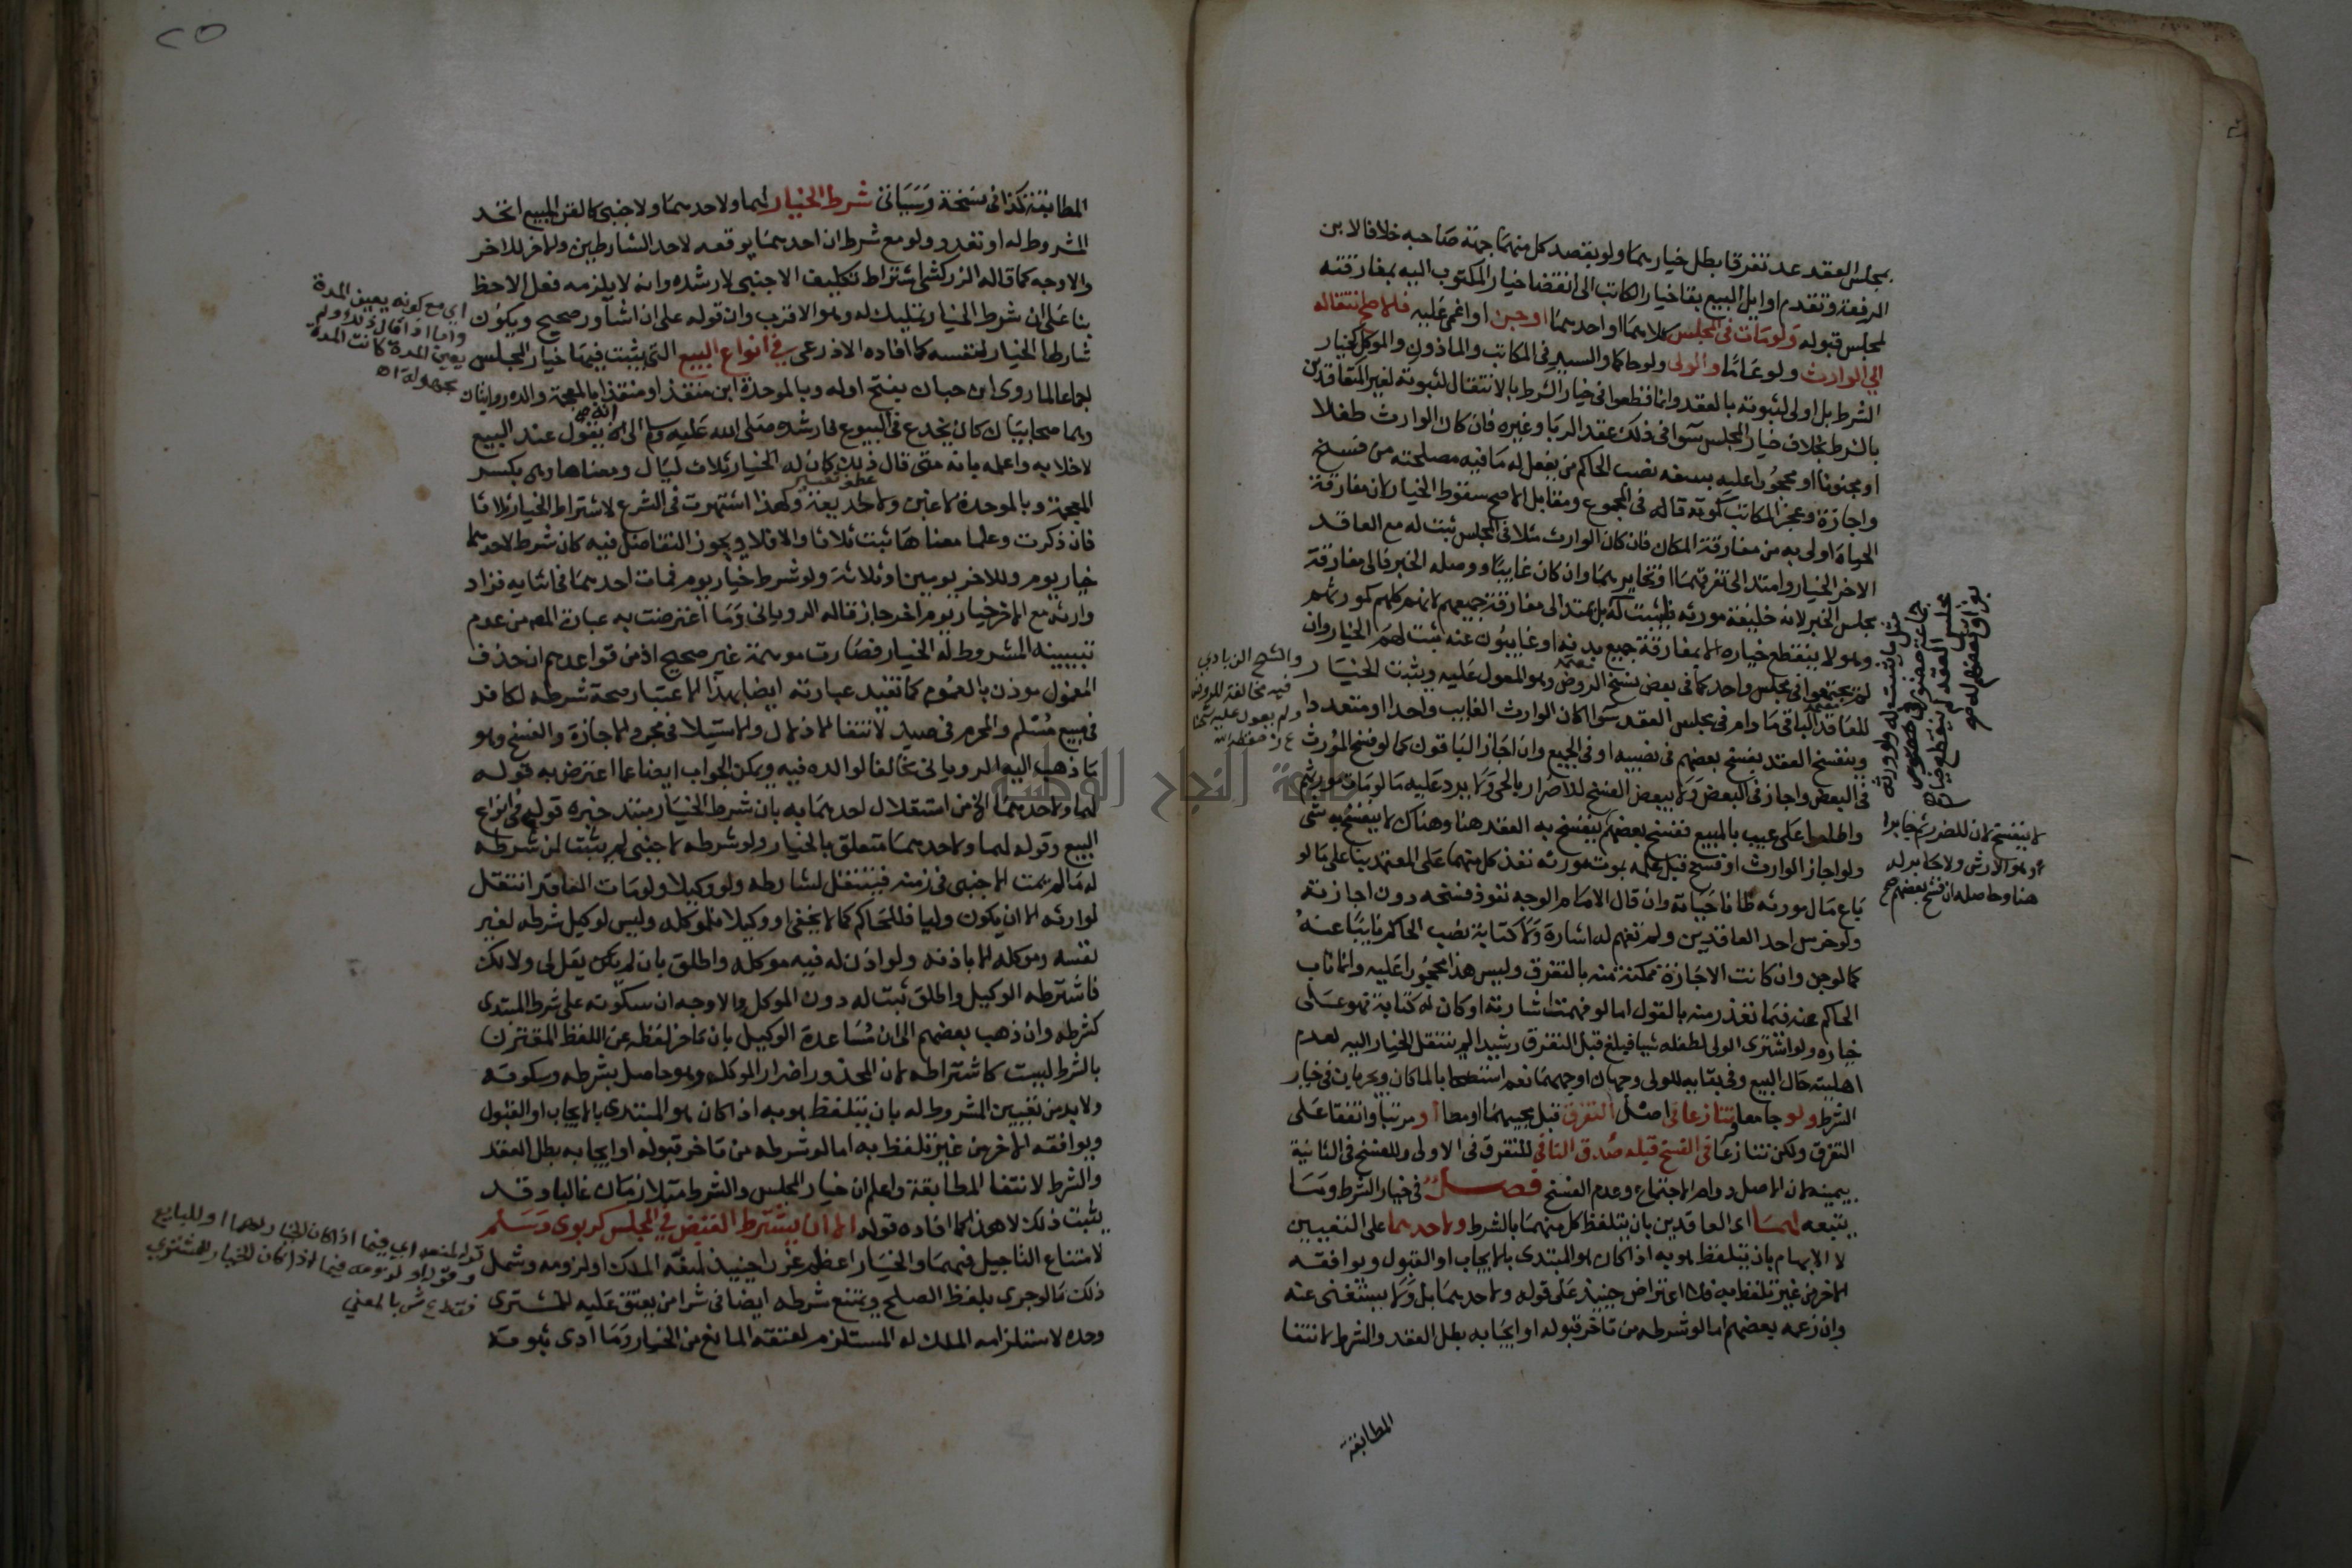 بمجلس العقد عد تفرقا بطل خيارهما ولو بقصد كل منهما جهة صاحبه خلافا لابن
الرفعة وتقدم اوايل البيع بقا خيار الكاتب الى انقضا خيار المكتوب اليه بمفارقته
لمجلس قبوله ولو مات في المجلس كلاهما او احدهما او جن او اغمى عليه فالاصح انتقاله
الي الوارث ولو عاما والولى ولو حاكما والسيد في المكاتب والماذون والموكل كخيار
الشرط بل اولى لثبوته بالعقد وانما قطعوا في خيار الشرط بالانتقال لثبوته لغير المتعاقدين
بالشرط بخلاف خيار المجلس سوا في ذلك عقد الربا وغيره فان كان الوارث طفلا
او مجنونا او محجورا عليه بسفه نصب الحاكم من يفعل له ما فيه مصلحته من فسخ
واجازة وعجز المكاتب كموته قاله في المجموع ومقابل الاصح سقوط الخيار لان مفارقة
الحياة اولى به من مفارقة المكان فان كان الوارث مثلا في المجلس ثبت له مع العاقد
الاخر الخيار وامتد الى تفرقهما او تخايرهما وان كان غايبا ووصله الخبر فالى مفارقة
مجلس الخبر لانه خليفة مورثه فيثبت له بل يمتد الى مفارقة جميعهم لانهم كلهم كمورثهم
وهو لا ينقطع خياره الا بمفارقة جميع بدنه او غايبون عنه ثبت لهم الخيار وان
لم يجتمعوا في مجلس واحد كما في بعض نسخ الروض وهو المعول عليه ويثبت الخيار
للعاقد الباقي ما دام في مجلس العقد سوا كان الوارث الغايب واحدا او متعددا
وينفسخ العقد بفسخ بعضهم في نصيبه او في الجميع وان اجاز الباقون كما لو فسخ المورث
في البعض واجاز في البعض ولا يبعض الفسخ للاضرار بالحى ولا يرد عليه ما لو مات مورثهم
واطلعوا على عيب بالمبيع ففسخ بعضهم ينفسخ به العقد هنا وهناك لا ينفسخ به شى
ولو اجاز الوارث او فسخ قبل علمه بموت مورثه نفذ كل منهما على المعتمد بنا على ما لو
باع مال مورثه ظانا حياته وان قال الامام الوجه نفوذ فسخه دون اجازته
ولو خرس احد العاقدين ولم تفهم له اشارة ولا كتابة نصب الحاكم نايبا عنه
كما لو جن وان كانت الاجازة ممكنة منه بالتفرق وليس هذا محجورا عليه وانما ناب
الحاكم عنه فيما تعذر منه بالقول اما لو فهمت اشارته او كان له كتابة فهو على
خياره ولو اشترى الولى لطفله شيا فبلغ قبل التفرق رشيدا لم ينتقل الخيار اليه لعدم
اهليته حال البيع وفي بقايه للولى وجهان اوجههما نعم استصحابا لما كان ويجريان في خيار
الشرط ولو جا معا وتنازعا في اصل التفرق قبل مجيهما او معا او مرتبا واتفقا على
التفرق ولكن تنازعا في الفسخ قبله صدق النافي للتفرق في الاولى وللفسخ في الثانية
بيمينه لان الاصل دوام الاجتماع وعدم الفسخ فصل في خيار الشرط وما
يتبعه لهما اى العاقدين بان يتلفظ كل منهما بالشرط ولاحدهما على التعيين
لا الابهام بان يتلفظ هو به اذا كان هو المبتدى بالايجاب او القبول ويوافقه
الاخر من غير تلفظ به فلا اعتراض حينيذ على قوله ولاحدهما بل ولا يستغنى عنه
وان زعمه بعضهم اما لو شرطه من تاخر قبوله او ايجابه بطل العقد والشرط لانتفا
المطابقة
مثل ما ثبت له ولورثة
جماعة حضور في
مجلس العقد لم ينقطع خيار
بفراق بعضهم له
لا ينفسخ لان للضرر ثم جابرا
وهو الارش ولا جابر له
هنا وحاصله ان فسخ بعضهم
والشيخ الزيادي
فيه مخالفة للروض
ولم يعول عليه شيخنا
حفظه الله
٢٥
المطابقة كذا في نسخة وسياتى شرط الخيار لهما ولاحدهما ولاجنبى كالقن المبيع اتحد
المشروط له او تعدد ولو مع شرط ان احدهما يوقعه لاحد الشارطين والاخر للاخر
والاوجه كما قاله الزركشى اشتراط تكليف الاجنبى لا رشده وانه لا يلزمه فعل الاحظ
بنا على ان شرط الخيار تمليك له وهو الاقرب وان قوله على ان اشاور صحيح ويكون
شارطا الخيار لنفسه كما افاده الاذرعى في انواع البيع التى يثبت فيها خيار المجلس
اجماعا لما روى ابن حبان بفتح اوله وبالموحدة ابن منقذ او منقذا بالمعجمة والده روايتان
وهما صحابيان كان يخدع في البيوع فارشده صلى الله عليه وسلم الى انه يقول عند البيع
لا خلابة واعلمه بانه متى قال ذلك كان له الخيار ثلاث ليال ومعناها وهى بكسر
المعجمة وبالموحدة لا غبن ولا خديعة ولهذا اشتهرت في الشرع لاشتراط الخيار ثلاثا
فان ذكرت وعلما معناها ثبت ثلاثا والا فلا ويجوز التفاضل فيه كان شرط لاحدهما
خيار يوم وللاخر يومين او ثلاثة ولو شرط خيار يوم فمات احدهما في اثنايه فزاد
وارثه مع الاخر خيار يوم اخر جاز قاله الرويانى وما اعترضت به عبارة المص من عدم
تبيينه المشروط له الخيار فصارت موهمة غير صحيح اذ من قواعدهم ان حذف
المعمول موذن بالعموم كما تفيد عبارته ايضا بهذا الاعتبار صحة شرطه لكافر
في مبيع مسلم والمحرم في صيد لانتفا الاذلال والاستيلا في مجرد الاجازة والفسخ وهو
ما ذهب اليه الرويانى مخالفا لوالده فيه ويمكن الجواب ايضا عما اعترض به قوله
لهما ولاحدهما الخ من استقلال احدهما به بان شرط الخيار مبتدا خبره قوله في انواع
البيع وقوله لهما ولاحدهما متعلق بالخيار ولو شرطه لاجنبى لم يثبت لمن شرطه
له ما لم يمت الاجنبى في زمنه فينتقل لشارطه ولو وكيلا ولو مات العاقد انتقل
لوارثه الا ان يكون وليا فللحاكم كما لا يخفى او وكيلا فلموكله وليس لوكيل شرطه لغير
نفسه وموكله الا باذنه ولو اذن له فيه موكله واطلق بان لم يكن يقل لى ولا لك
فاشترطه الوكيل واطلق ثبت له دون الموكل والاوجه ان سكوته على شرط المبتدى
كشرطه وان ذهب بعضهم الى ان مساعدة الوكيل بان تاخر لفظه عن اللفظ المقترن
بالشرط ليست كاشتراطه لان المحذور اضرار الموكل وهو حاصل بشرطه وسكوته
ولا بد من تعيين المشروط له بان يتلفظ هو به اذا كان هو المبتدى بالايجاب او القبول
ويوافقه الاخر من غير تلفظ به اما لو شرطه من تاخر قبوله او ايجابه بطل العقد
والشرط لانتفا المطابقة واعلم ان خيار المجلس والشرط متلازمان غالبا وقد
يثبت ذلك لا هذا كما افاده قوله الا ان يشترط القبض في المجلس كربوى وسلم
لامتناع التاجيل فيهما والخيار اعظم غررا حينيذ لمنعه الملك او لزومه وشمل
ذلك ما لو جرى بلفظ الصلح ويمتنع شرطه ايضا في شرا من يعتق عليه للمشترى
وحده لاستلزامه الملك له المستلزم لعتقه المانع من الخيار وما ادى ثبوته
اى مع كونه يعين المدة
واما اذا قال ذلك ولم
يعين المدة كانت المدة
مجهولة اه
عطف تفسير
قوله لمنعه اي فيما اذا كان الخيار لهما او للبايع
وقوله او لزومه فيما اذا كان الخيار للمشتري
فقط ع ش بالمعني
جامعة النجاح الوطنية